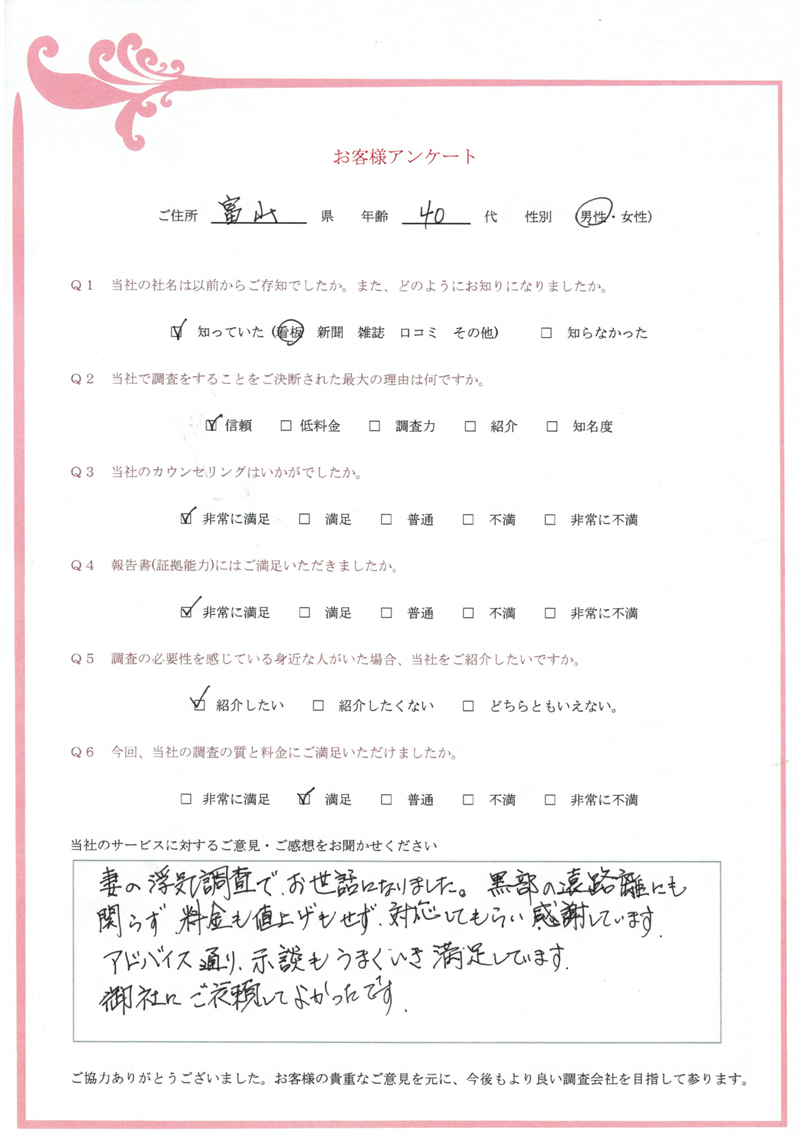 お客様アンケート
ご住所 富山 県 年齢 40 代 性別 (男性・女性)
Q1 当社の社名は以前からご存知でしたか。また、どのようにお知りになりましたか。
☑ 知っていた (看板 新聞 雑誌 口コミ その他) □ 知らなかった
Q2 当社で調査をすることをご決断された最大の理由は何ですか。
☑ 信頼 □ 低料金 □ 調査力 □ 紹介 □ 知名度
Q3 当社のカウンセリングはいかがでしたか。
☑ 非常に満足 □ 満足 □ 普通 □ 不満 □ 非常に不満
Q4 報告書(証拠能力)にはご満足いただきましたか。
☑ 非常に満足 □ 満足 □ 普通 □ 不満 □ 非常に不満
Q5 調査の必要性を感じている身近な人がいた場合、当社をご紹介したいですか。
☑ 紹介したい □ 紹介したくない □ どちらともいえない。
Q6 今回、当社の調査の質と料金にご満足いただけましたか。
□ 非常に満足 ☑ 満足 □ 普通 □ 不満 □ 非常に不満
当社のサービスに対するご意見・ご感想をお聞かせください
妻の浮気調査で、お世話になりました。黒部の遠路離にも
関らず 料金も値上げもせず、対応してもらい 感謝しています.
アドバイス通り、示談もうまくいき 満足しています.
御社にご依頼してよかったです.
ご協力ありがとうございました。お客様の貴重なご意見を元に、今後もより良い調査会社を目指して参ります。